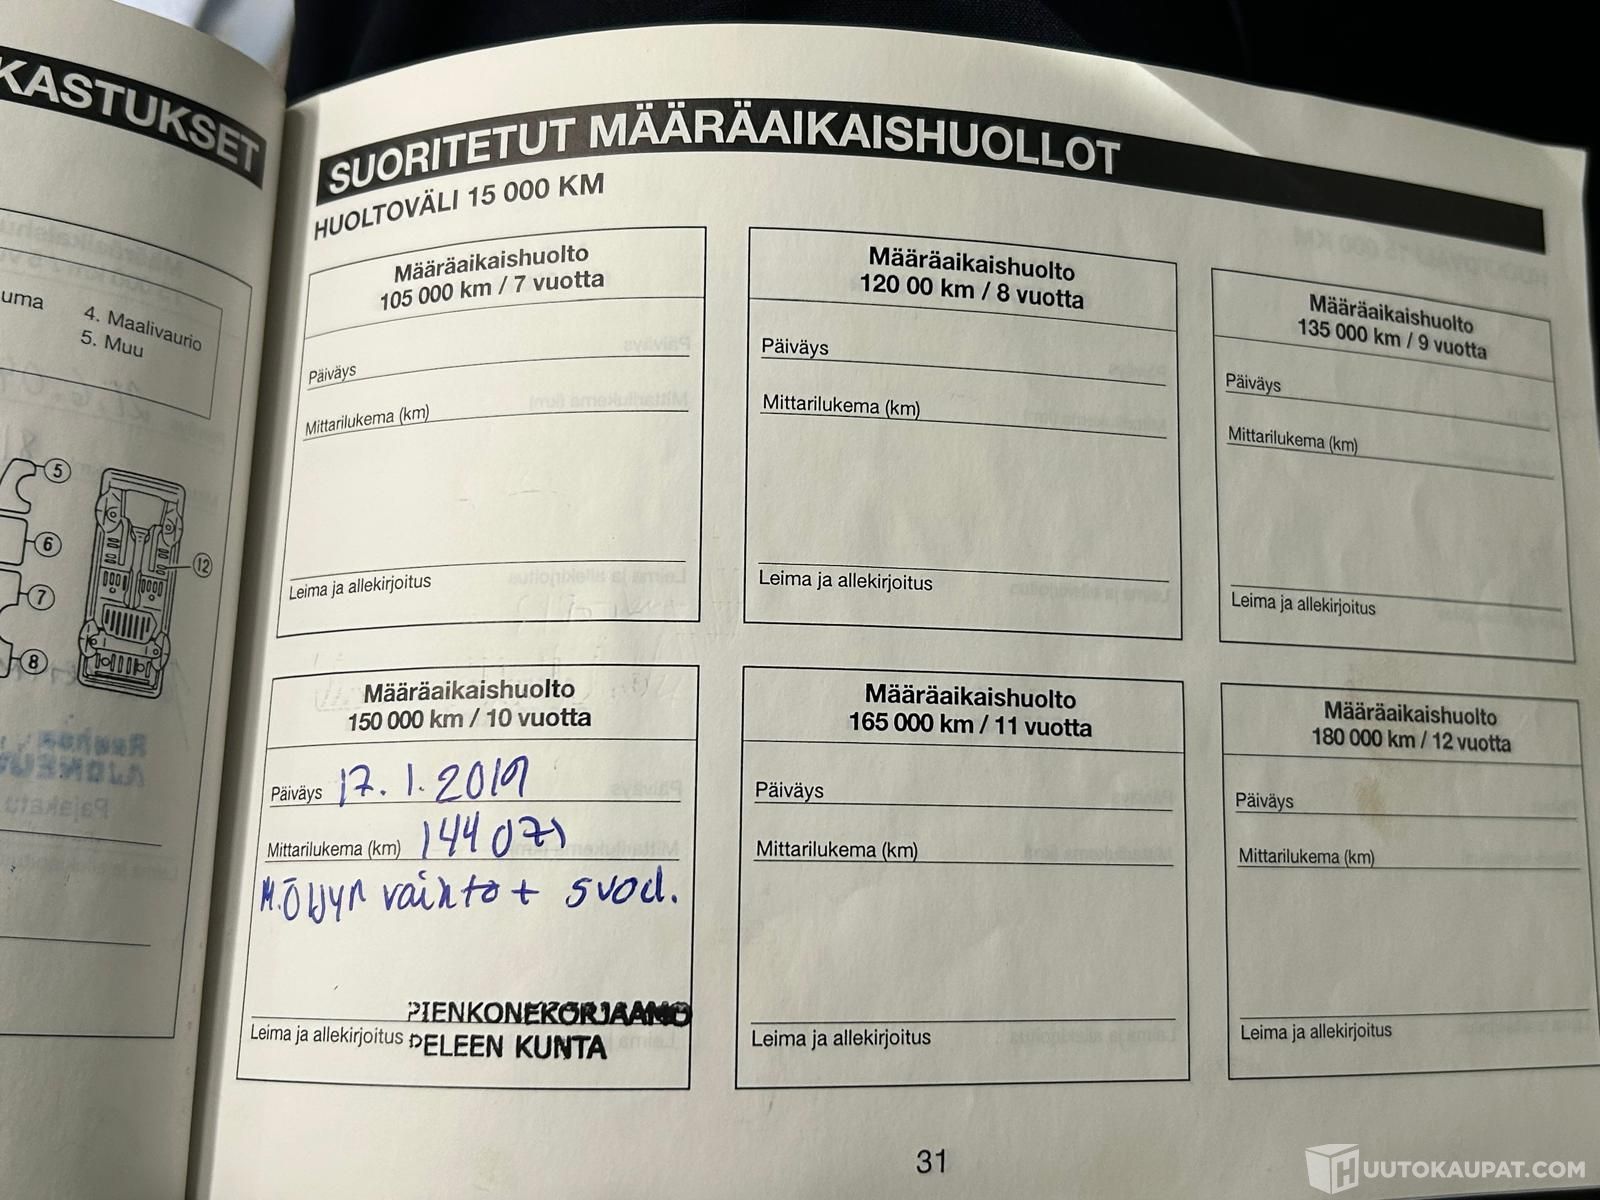 KASTUKSET
uma
4. Maalivaurio
5. Muu
5
6
7
8
12
SUORITETUT MÄÄRÄAIKAISHUOLLOT
HUOLTOVÄLI 15 000 KM
Määräaikaishuolto
105 000 km / 7 vuotta
Päiväys
Mittarilukema (km)
Leima ja allekirjoitus
Määräaikaishuolto
120 00 km / 8 vuotta
Päiväys
Mittarilukema (km)
Leima ja allekirjoitus
Määräaikaishuolto
135 000 km / 9 vuotta
Päiväys
Mittarilukema (km)
Leima ja allekirjoitus
Määräaikaishuolto
150 000 km / 10 vuotta
Päiväys 17. 1. 2019
Mittarilukema (km) 144 071
M. Öljyn vaihto + svod.
PIENKONEKORJAAMO
Leima ja allekirjoitus PELEEN KUNTA
Määräaikaishuolto
165 000 km / 11 vuotta
Päiväys
Mittarilukema (km)
Leima ja allekirjoitus
Määräaikaishuolto
180 000 km / 12 vuotta
Päiväys
Mittarilukema (km)
Leima ja allekirjoitus
31
HUUTOKAUPAT.COM